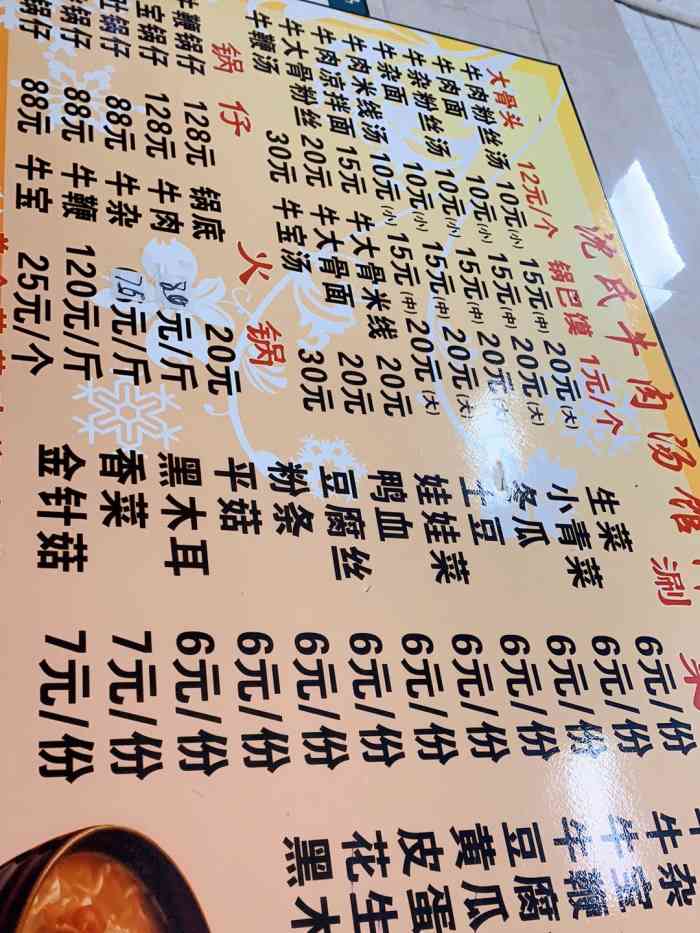 沈氏牛肉汤馆
大骨头 12元/个 锅巴馍 1元/个
牛肉粉丝汤 10元(小) 15元(中) 20元(大)
牛肉面 10元(小) 15元(中) 20元(大)
牛杂粉丝汤 10元(小) 15元(中) 20元(大)
牛杂面 10元(小) 15元(中) 20元(大)
牛肉米线汤 10元(小) 15元(中) 20元(大)
牛肉凉拌面 15元 牛大骨米线 20元
牛大骨粉丝 20元 牛大骨面 20元
牛鞭汤 30元 牛宝汤 30元
锅仔 火锅
牛鞭锅仔 128元 锅底 20元
宝锅仔 128元 牛肉 80元/斤
肚锅仔 88元 牛杂 75元/斤
锅仔 88元 牛鞭 120元/斤
锅仔 88元 牛宝 25元/个
涮菜
生菜 6元/份
小青菜 6元/份
冬瓜 6元/份
土豆 6元/份
娃娃菜 6元/份
鸭血 6元/份
豆腐丝 6元/份
粉条 6元/份
平菇 6元/份
黑木耳 6元/份
香菜 7元/份
金针菇 7元/份
牛杂
牛宝
牛鞭
豆腐
黄瓜
皮蛋
花生
黑木